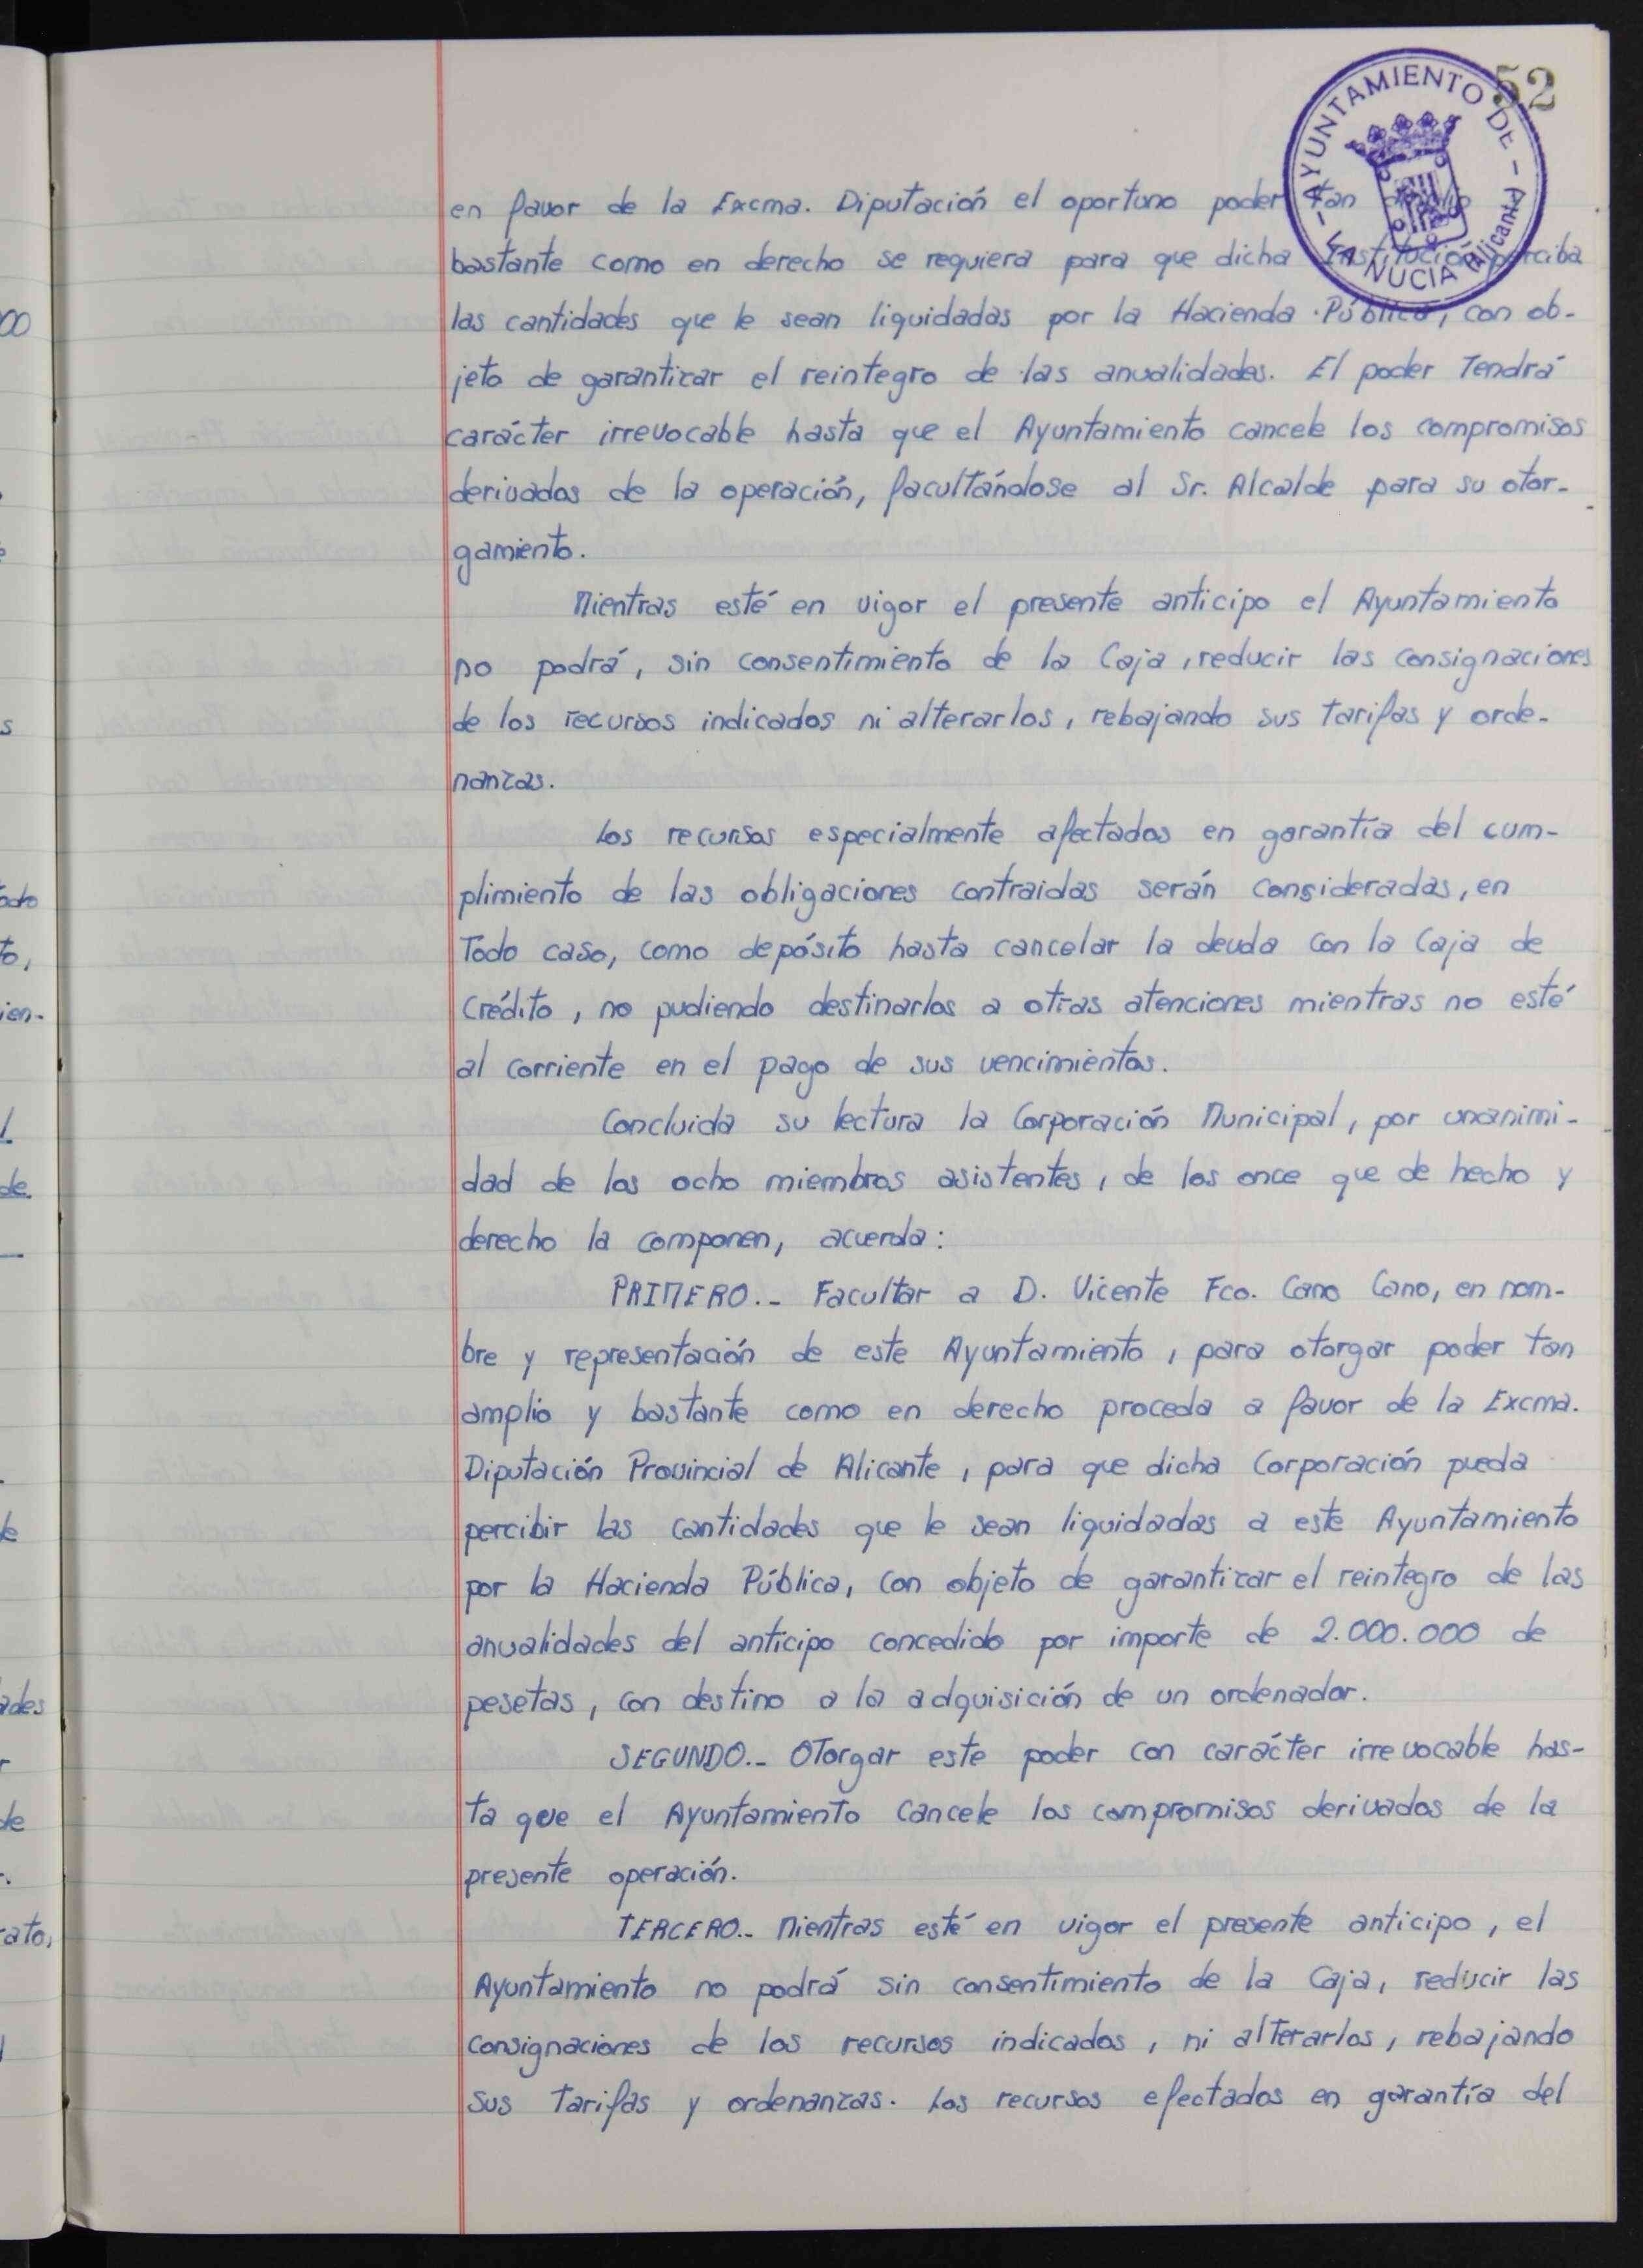 52
AYUNTAMIENTO DE
LA NUCIA (Alicante)
en favor de la Excma. Diputación el oportuno poder tan
bastante como en derecho se requiera para que dicha Institución perciba
las cantidades que le sean liquidadas por la Hacienda Pública, con ob-
jeto de garantizar el reintegro de las anualidades. El poder Tendrá
carácter irrevocable hasta que el Ayuntamiento cancele los compromisos
derivados de la operación, facultándose al Sr. Alcalde para su otor-
gamiento.
Mientras esté en vigor el presente anticipo el Ayuntamiento
no podrá, sin consentimiento de la Caja, reducir las consignaciones
de los recursos indicados ni alterarlos, rebajando sus tarifas y orde-
nanzas.
Los recursos especialmente afectados en garantía del cum-
plimiento de las obligaciones contraidas serán consideradas, en
Todo caso, como depósito hasta cancelar la deuda con la Caja de
Crédito, no pudiendo destinarlos a otras atenciones mientras no esté
al corriente en el pago de sus vencimientos.
Concluida su lectura la Corporación Municipal, por unanimi-
dad de los ocho miembros asistentes, de los once que de hecho y
derecho la componen, acuerda:
PRIMERO.- Facultar a D. Vicente Fco. Cano Cano, en nom-
bre y representación de este Ayuntamiento, para otorgar poder tan
amplio y bastante como en derecho proceda a favor de la Excma.
Diputación Provincial de Alicante, para que dicha Corporación pueda
percibir las cantidades que le sean liquidadas a este Ayuntamiento
por la Hacienda Pública, con objeto de garantizar el reintegro de las
anualidades del anticipo concedido por importe de 2.000.000 de
pesetas, con destino a la adquisición de un ordenador.
SEGUNDO.- Otorgar este poder con carácter irrevocable has-
ta que el Ayuntamiento cancele los compromisos derivados de la
presente operación.
TERCERO.- Mientras esté en vigor el presente anticipo, el
Ayuntamiento no podrá sin consentimiento de la Caja, reducir las
consignaciones de los recursos indicados, ni alterarlos, rebajando
sus tarifas y ordenanzas. Los recursos efectados en garantía del